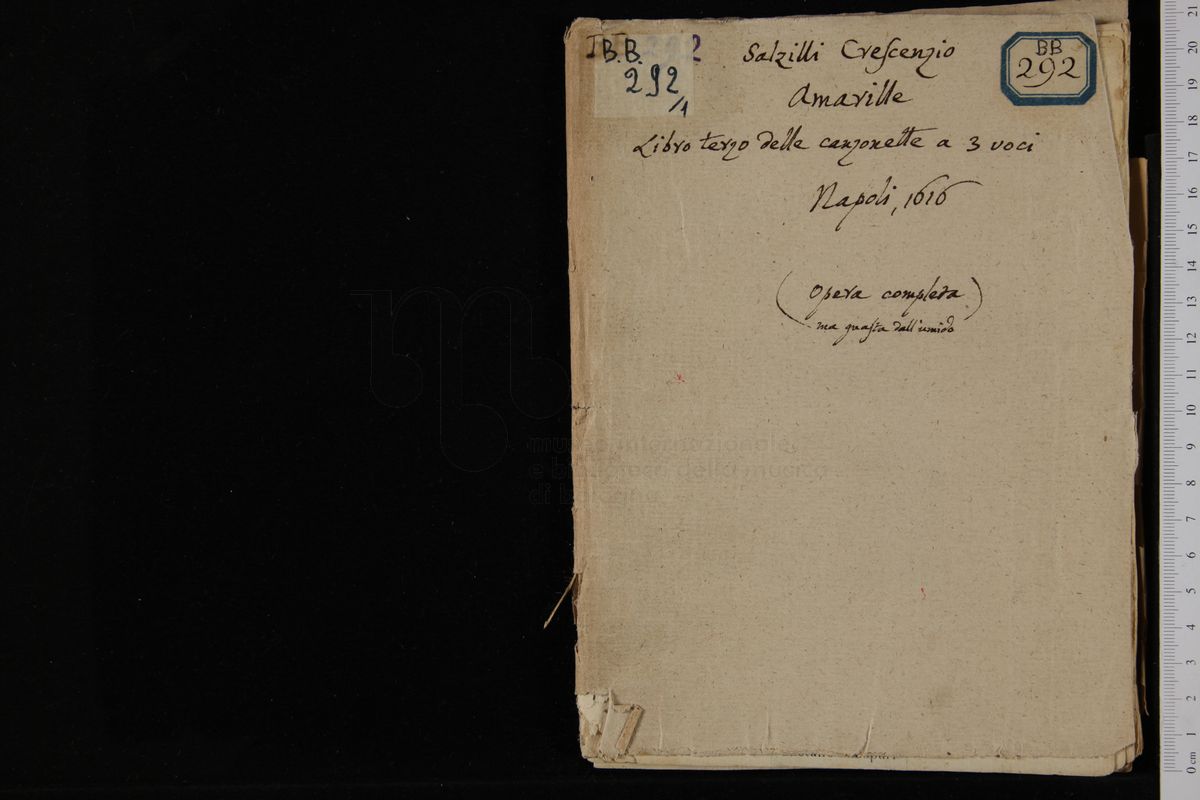 B.B. 2
292
/1
BB
292
Salzilli Crescenzio
Amarille
Libro terzo delle canzonette a 3 voci
Napoli, 1616
(Opera completa
ma guasta dall'umido)
museo internazionale
e biblioteca della musica
di bologna
0 cm 1 2 3 4 5 6 7 8 9 10 11 12 13 14 15 16 17 18 19 20 21